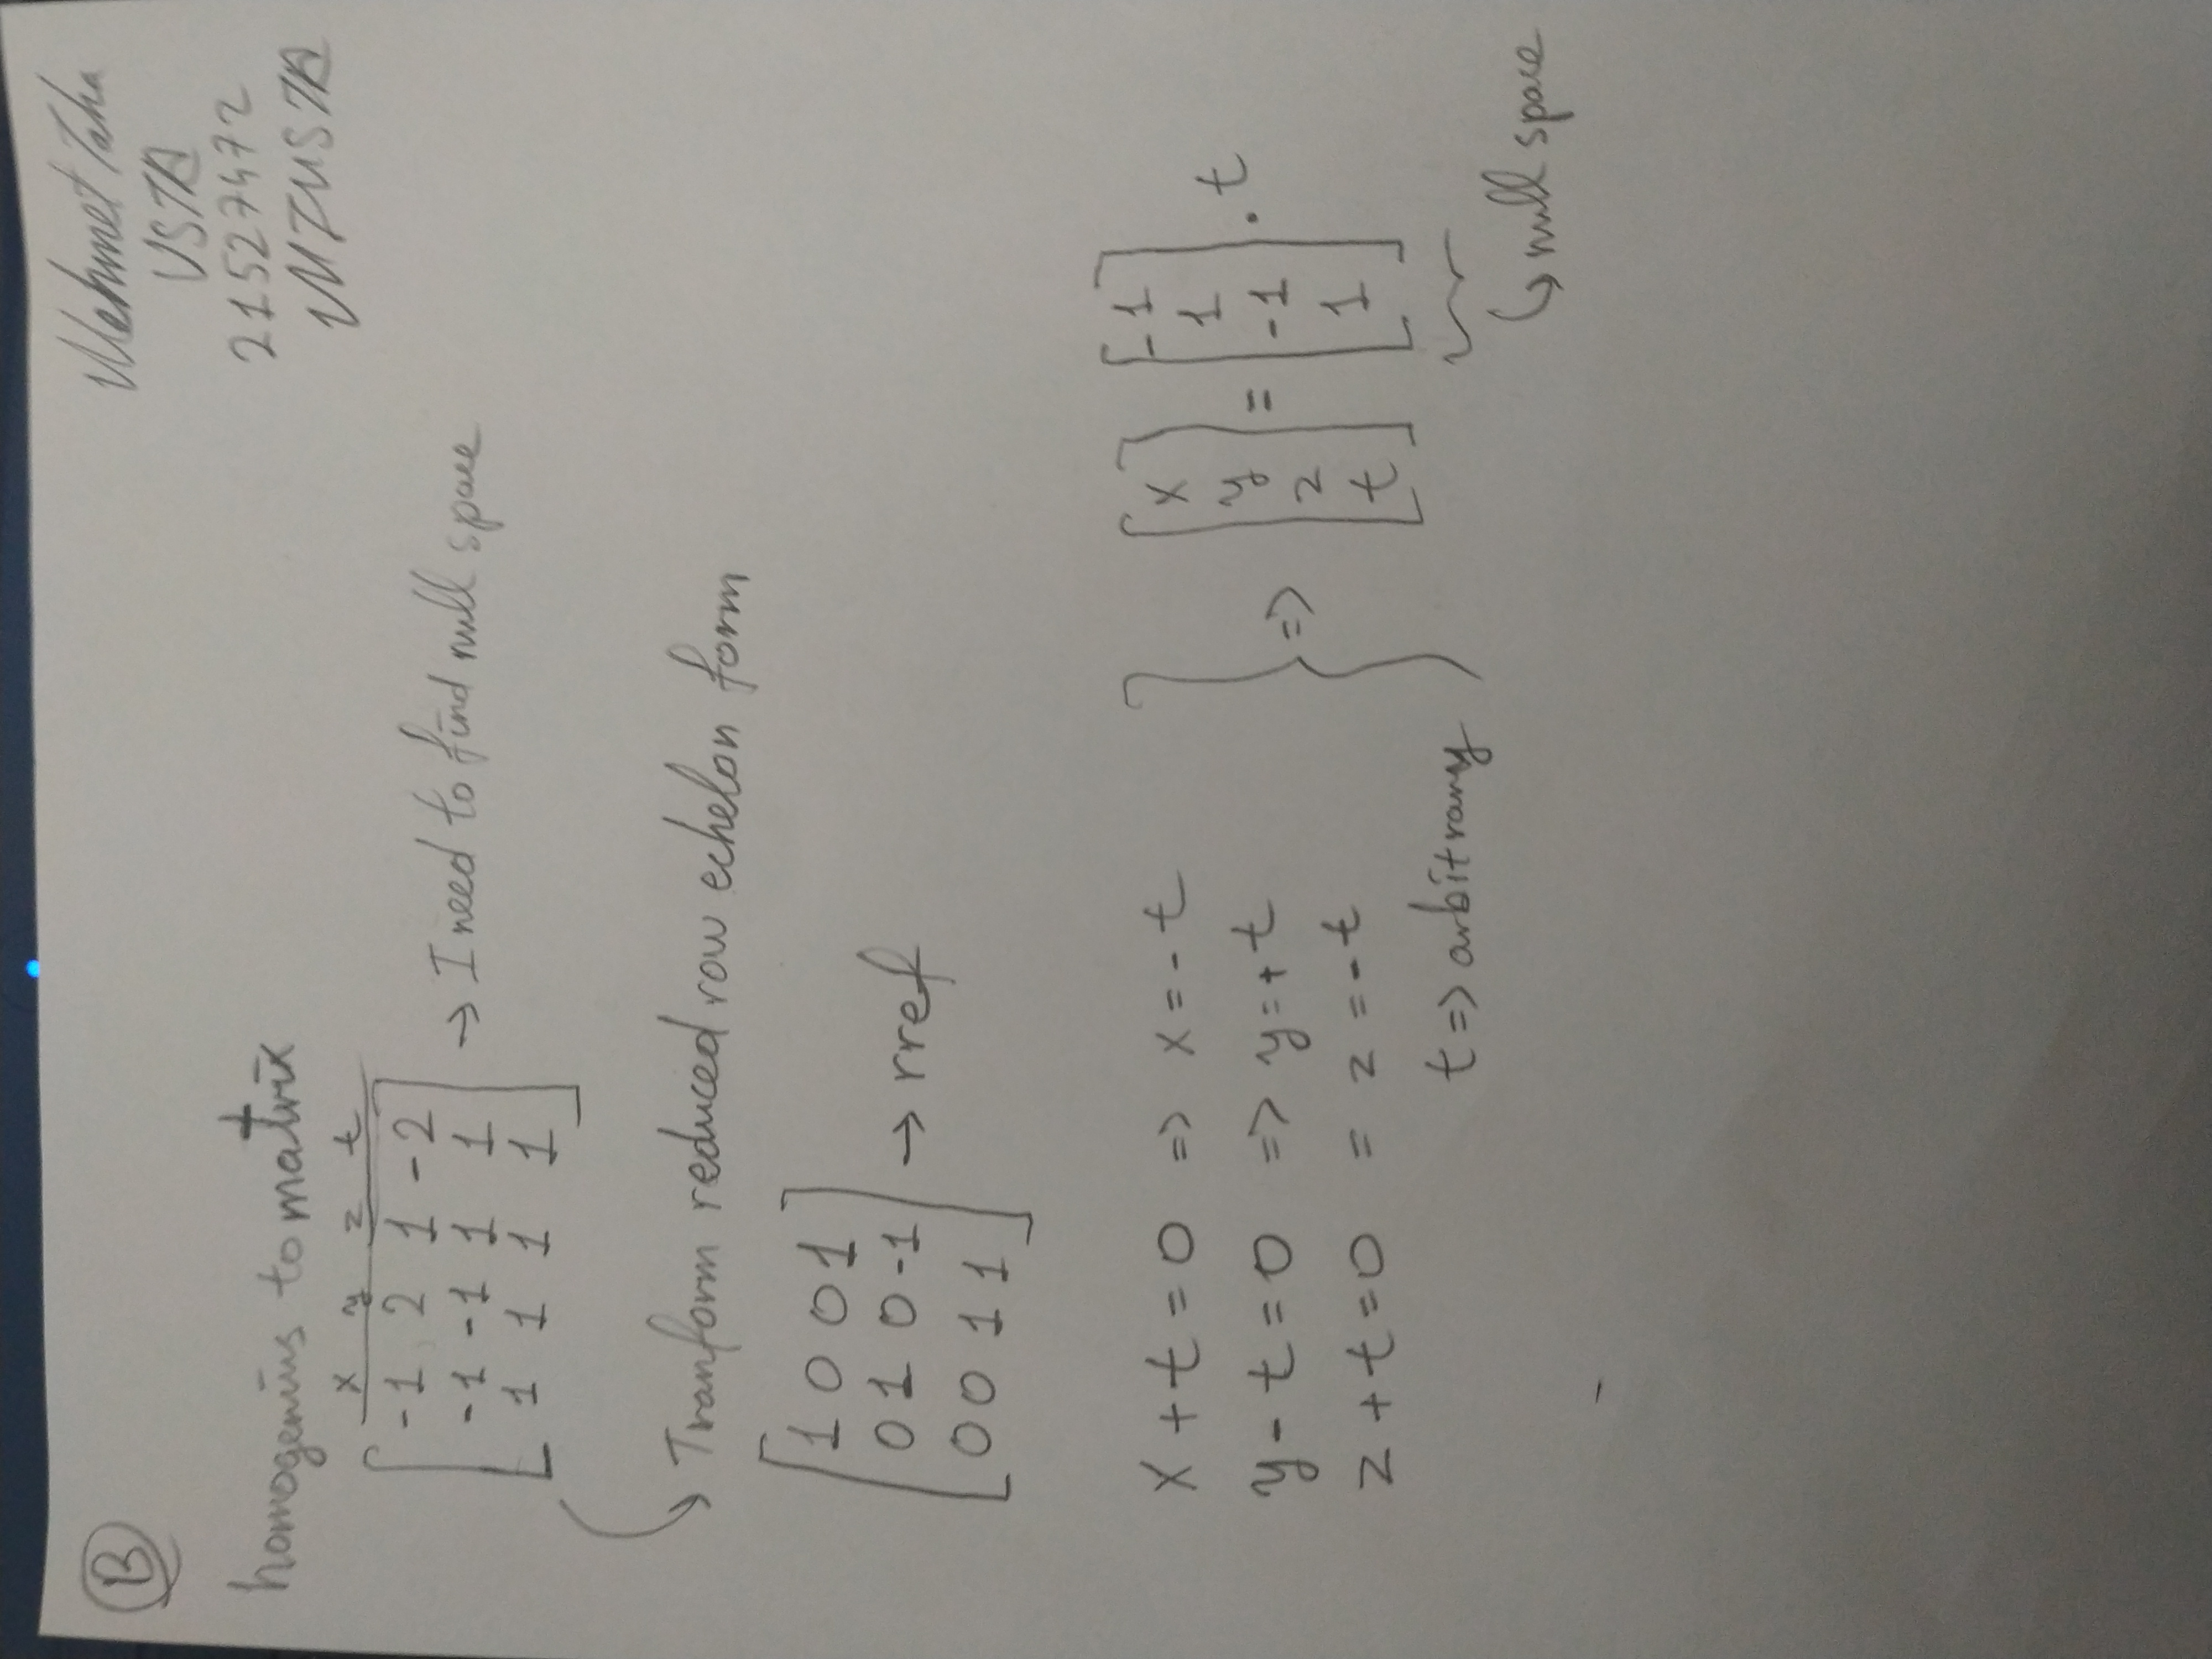 B
Mehmet Taha
USTA
21527472
MTUSTA
homogenius to matrix
x y z t
-1 2 1 -2
-1 -1 1 1 → I need to find null space
1 1 1 1
Tranform reduced row echelon form
1 0 0 1
0 1 0 -1 → rref
0 0 1 1
x + t = 0 => x = - t
y - t = 0 => y = + t
z + t = 0 = z = - t
t => arbitrary
=> [x y z t] = [-1 1 -1 1] . t
null space